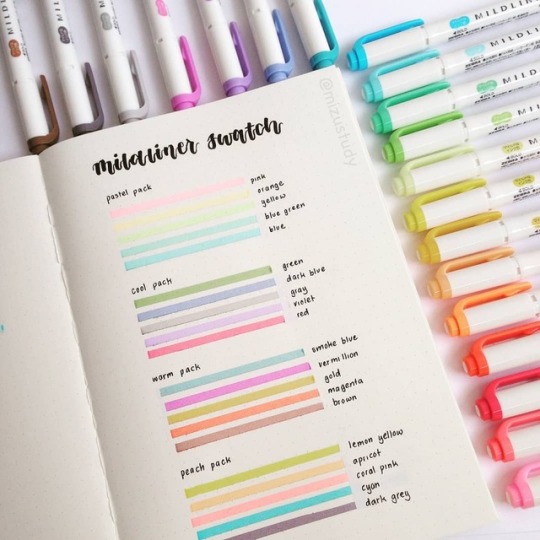 mildliner swatch
@mizustudy
pastel pack
pink
orange
yellow
blue green
blue
cool pack
green
dark blue
gray
violet
red
warm pack
smoke blue
vermillion
gold
magenta
brown
peach pack
lemon yellow
apricot
coral pink
cyan
dark grey
MILDLIN
MILDLI
MILDL
MILD